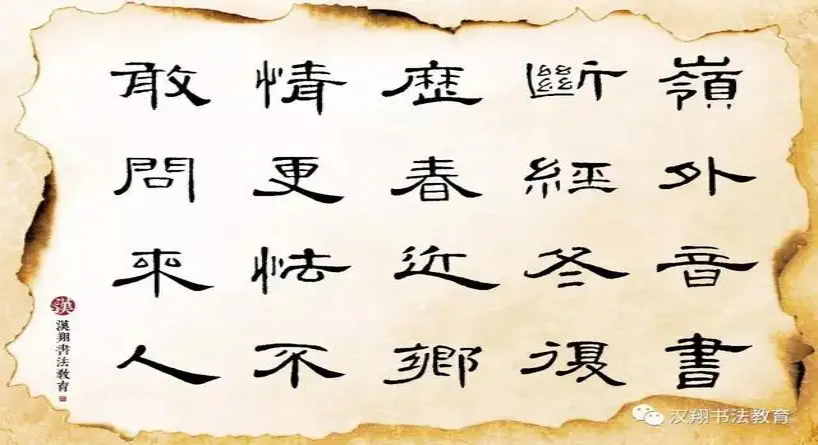 嶺外音書
斷經冬復
歷春近鄉
情更怯不
敢問來人
漢
漢翔書法教育
汉翔书法教育